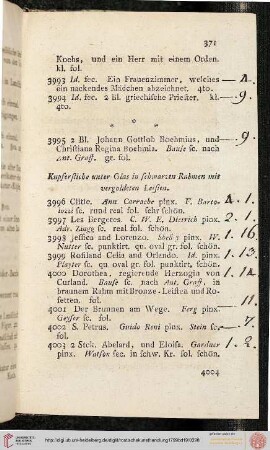 371
Kochs, und ein Herr mit einem Orden.
kl. fol.
3993 Id. sec. Ein Frauenzimmer, welches
ein nackendes Mädchen abzeichnet. 4to.
3994 Id. sec. 2 Bl. griechische Priester, kl.
4to.
9.
* * *
3995 2 Bl. Johann Gottlob Boehmius, und
Christiana Regina Boehmia. Bause sc. nach
Ant. Graff. gr. fol.
9.
Kupferstiche unter Glas in schwarzen Rahmen mit
vergoldeten Leisten.
3996 Clitie. Ann. Carrache pinx. F. Barto-
lozzi sc. rund real fol. sehr schön.
1.
3997 Les Bergeres C. W. E. Dietrich pinx.
Adr. Zingg sc. real fol. schön.
2. 1.
3998 Jessica and Lorenzo. pinx. W.
Nutter sc. punktirt, qu. oval gr. fol. schön.
1. 16.
3999 Rosalind Celia and Orlando. Id. pinx.
Playter sc. qu. oval gr. fol. punktirt, schön.
1. 13.
4000 Dorothea, regierende Herzogin von
Curland. Bause sc. nach Ant. Graff, in
braunem Rahm mit Bronze-Leisten und Ro-
setten. fol.
4001 Der Brunnen am Wege. Ferg pinx.
Geyser sc. fol.
11.
4002 S. Petrus. Guido Reni pinx. Stein sc.
fol.
7.
4003 2 Stck. Abelard, und Eloisa. Gardner
pinx. Watson sec. in schw. Kr. fol. schön.
1. 2.
4004